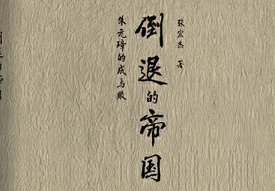 张宏杰 著
倒退的帝国
朱元璋的成与败